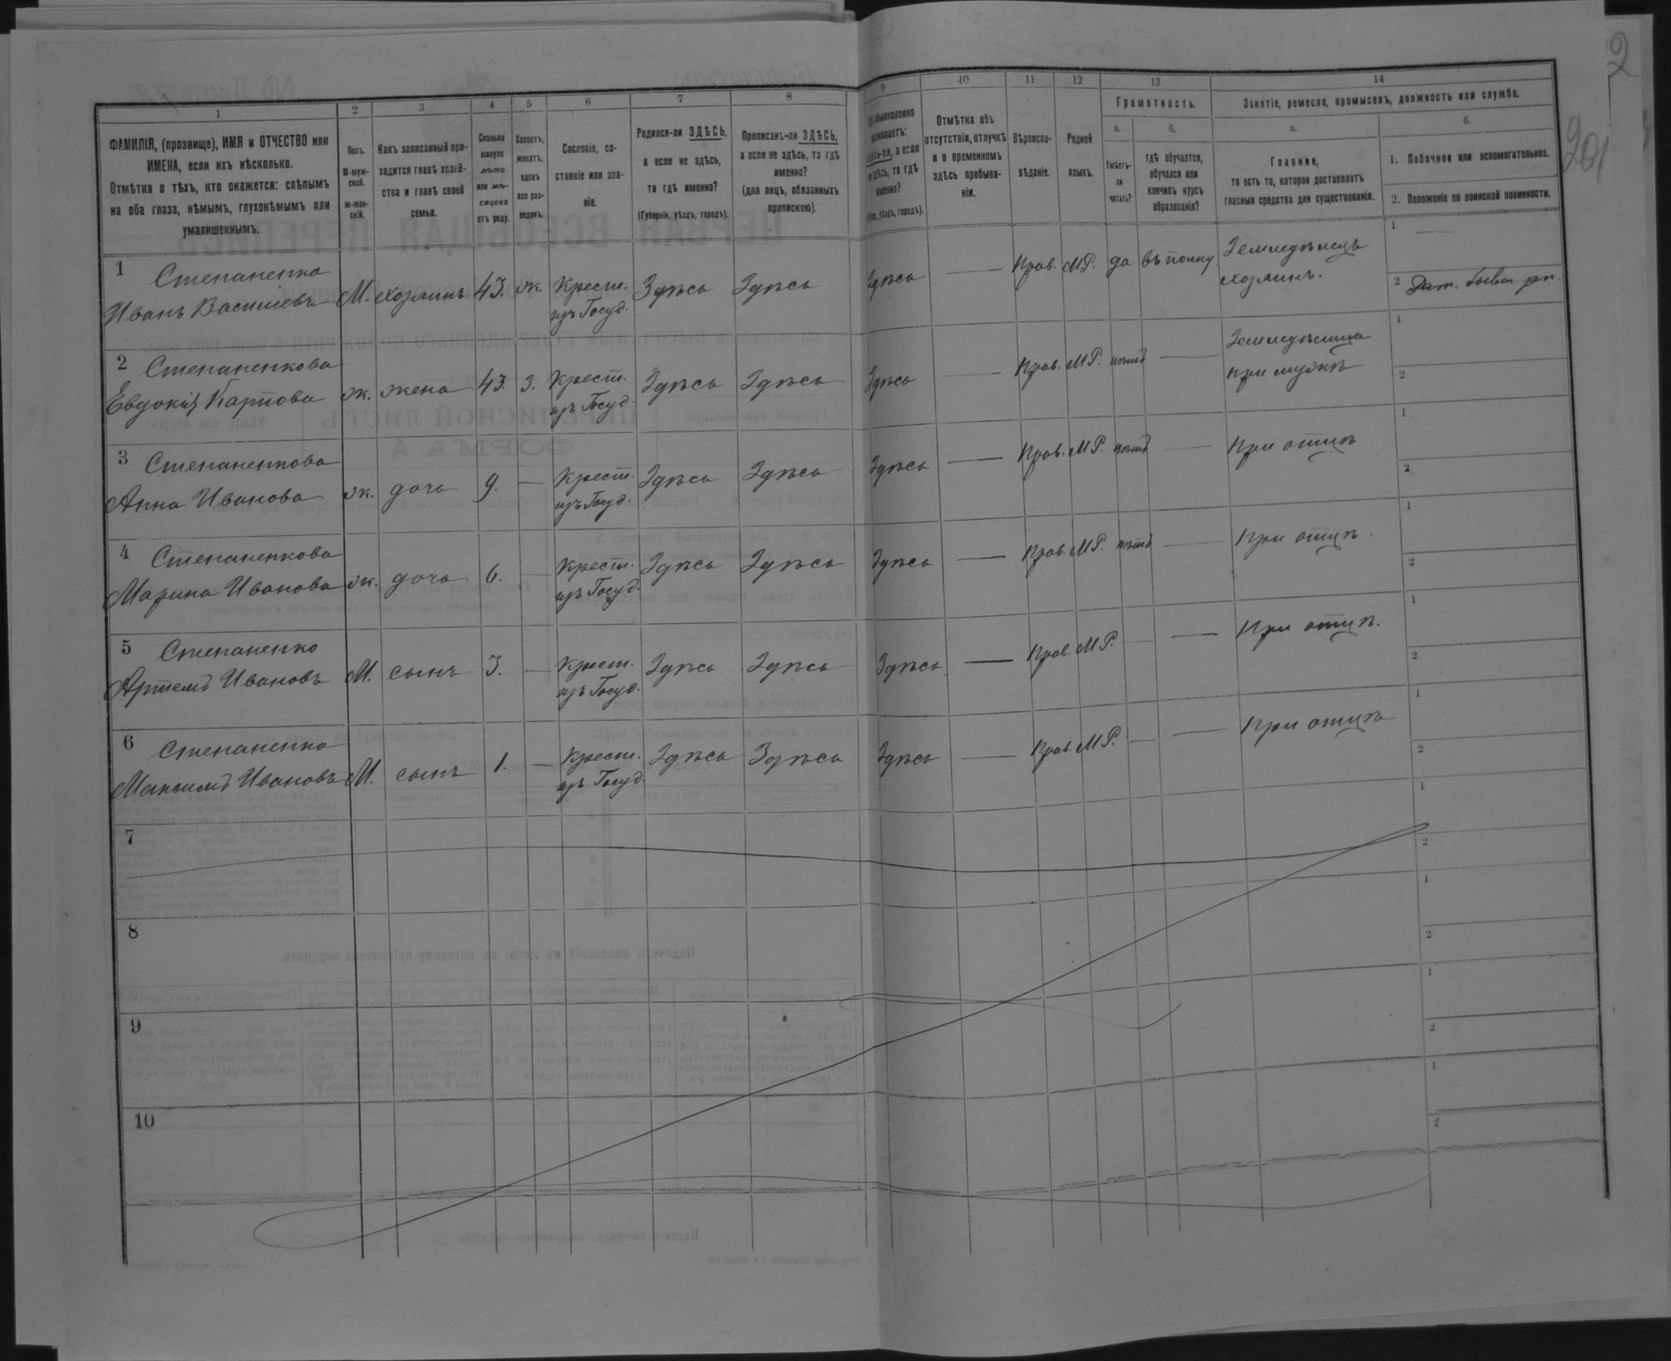 2
201
1 2 3 4 5 6 7 8 9 10 11 12 13 14
ФАМИЛІЯ, (прозвище), ИМЯ и ОТЧЕСТВО или
ИМЕНА, если ихъ нѣсколько.
Отмѣтка о тѣхъ, кто окажется: слѣпымъ
на оба глаза, нѣмымъ, глухонѣмымъ или
умалишеннымъ.
Полъ.
М-муж-
ской.
ж-жен-
скій.
Какъ записанный при-
ходится главѣ хозяй-
ства и главѣ своей
семьи.
Сколько
минуло
лѣтъ
или мѣ-
сяцевъ
отъ роду.
Холостъ,
женатъ,
вдовъ
или раз-
веденъ.
Сословіе, со-
стояніе или зва-
ніе.
Родился-ли ЗДѢСЬ,
а если не здѣсь,
то гдѣ именно?
(Губернія, уѣздъ, городъ).
Приписанъ-ли ЗДѢСЬ,
а если не здѣсь, то гдѣ
именно?
(для лицъ, обязанныхъ
припискою).
Отмѣтка объ
отсутствіи, отлучкѣ
и о временномъ
здѣсь пребыва-
ніи.
Вѣроиспо-
вѣданіе.
Родной
языкъ.
Грамотность.
а.
Умѣетъ-
ли
читать?
б.
гдѣ обучается,
обучался или
кончилъ курсъ
образованія?
Занятіе, ремесло, промыселъ, должность или служба.
а.
Главное,
то есть то, которое доставляетъ
главныя средства для существованія.
б.
1. Побочное или вспомогательное.
2. Положеніе по воинской повинности.
1 Степаненко
Иванъ Васильевъ М. хозяинъ 43. ж. Крест. изъ Госуд. Здѣсь Здѣсь Здѣсь — Прав. МР. да въ полку Земледѣлецъ хозяинъ.
1 —
2
2 Степаненкова
Евдокія Карпова ж. жена 43. з. Крест. изъ Госуд. Здѣсь Здѣсь Здѣсь — Прав. МР. нѣтъ — Земледѣлица при мужѣ
1
2
3 Степаненкова
Анна Иванова ж. дочь 9. — Крест. изъ Госуд. Здѣсь Здѣсь Здѣсь — Прав. МР. нѣтъ — При отцѣ
1
2
4 Степаненкова
Марина Иванова ж. дочь 6. — Крест. изъ Госуд. Здѣсь Здѣсь Здѣсь — Прав. МР. нѣтъ — При отцѣ.
1
2
5 Степаненко
Артемъ Ивановъ М. сынъ 3. — Крест. изъ Госуд. Здѣсь Здѣсь Здѣсь — Прав. МР. — — При отцѣ.
1
2
6 Степаненко
Максимъ Ивановъ М. сынъ 1. — Крест. изъ Госуд. Здѣсь Здѣсь Здѣсь — Прав. МР. — — При отцѣ
1
2
7
1
2
8
1
2
9
1
2
10
1
2